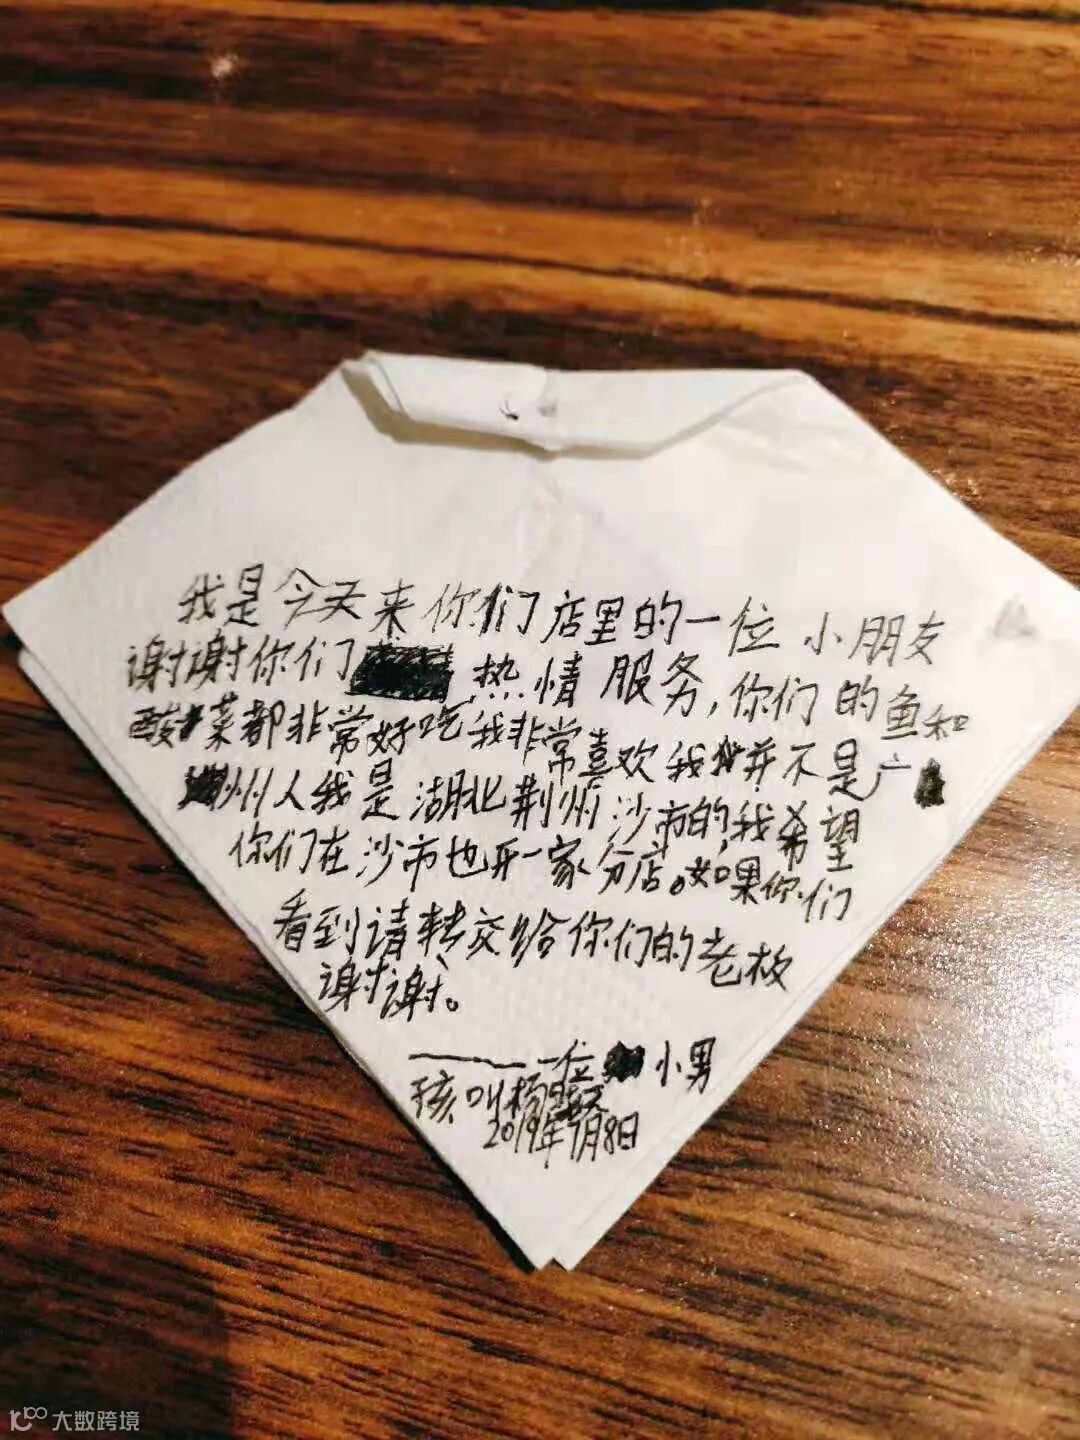 我是今天来你们店里的一位小朋友
谢谢你们热情服务,你们的鱼和
酸菜都非常好吃我非常喜欢我并不是广
州人我是湖北荆州沙市的,我希望
你们在沙市也开一家分店。如果你们
看到请转交给你们的老板
谢谢。
——一位小男
孩叫杨
2019年7月8日
大数跨境